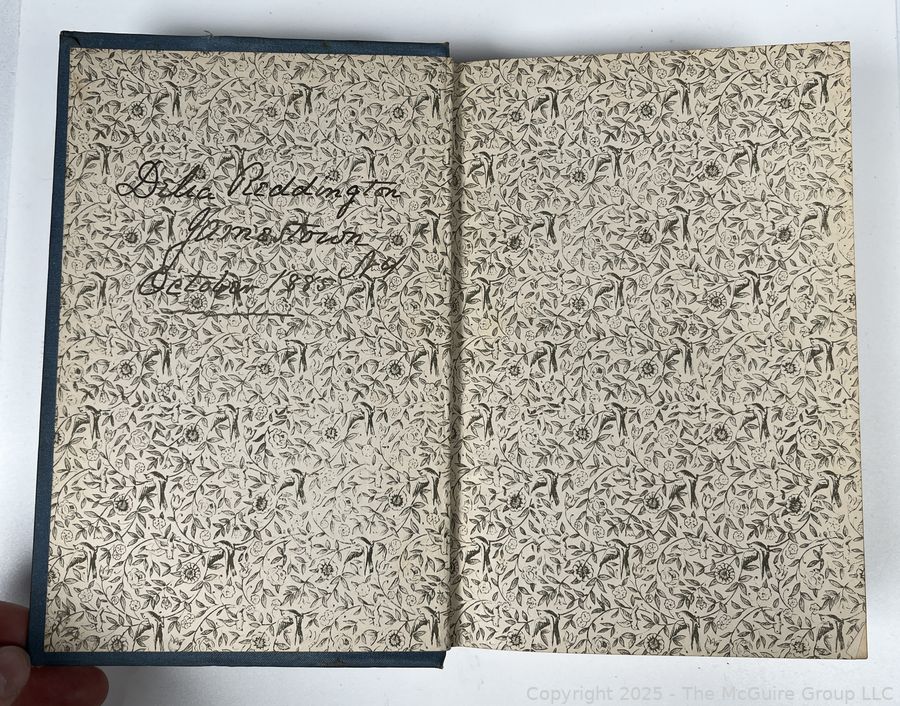 Delia Reddington
Jamestown
N.Y
October 1885
Copyright 2025 - The McGuire Group LLC